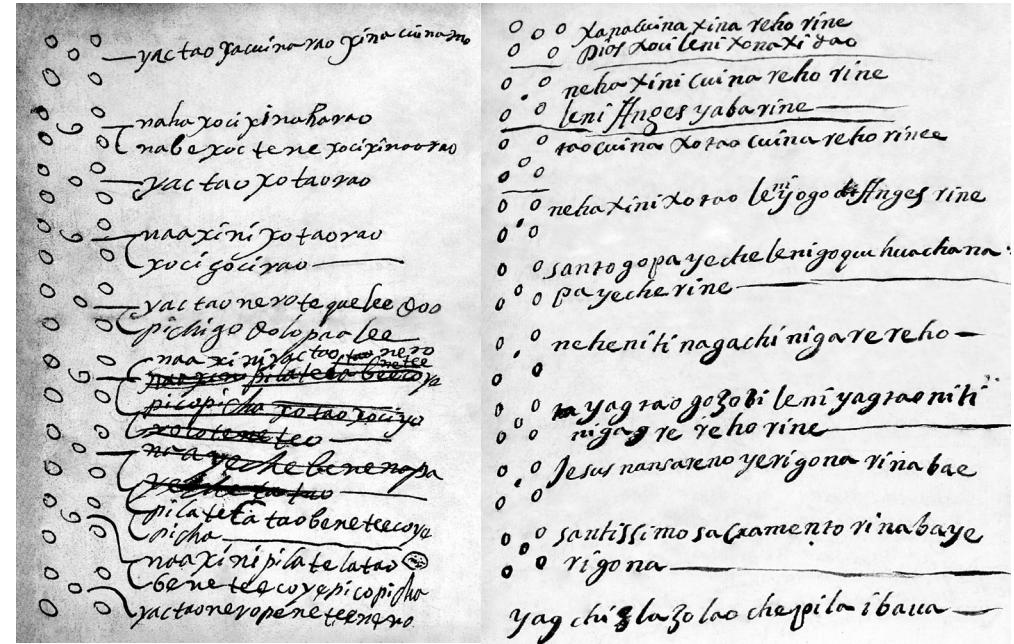 yac tao xacuina rao xina cuina rao
naha xoci xinaharao
nabe xoc tene xocixinaorao
yac tao xo taorao
naa xini xo taorao
xoci gocirao
yac tao nero te que lee
pichigo olo paa lee
naa xini yac tao tao nero
naa xini pilatela benecoya
pico picha xo tao xociyo
xolo tene teo
naa yeche benenopa
yeche ta tao
pila tela tao beneteecoye
picha
naa xini pilatelatao
bene tee coye pico picha
yac tao nero pene tee nero
xapa cuina xina reho rine
Dios xoci leni xonaxi dao
neha xini cuina reho rine
leni Anges yaba rine
tao cuina xo tao cuina reho rinee
neha xini xo tao leni yogo Anges rine
santo gopa yeche leni goqui huachana
pa yeche rine
neheniti nagachi niga re reho
yag tao gozobi leni yagtao niti
niga re reho rine
Jesus nansareno yerigona rina bae
santissimo sacramento rina baye
rigona
yag chi la zo lao che pila ibaua